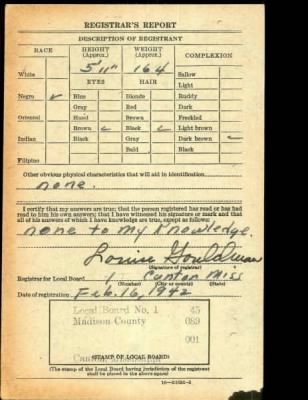 REGISTRAR'S REPORT
DESCRIPTION OF REGISTRANT
RACE HEIGHT (Approx.) WEIGHT (Approx.) COMPLEXION
5' 11" 164
White Sallow
EYES HAIR Light
Negro ✓ Blue Blonde Ruddy
Gray Red Dark
Oriental Hazel Brown Freckled
Brown ✓ Black ✓ Light brown
Indian Black Gray Dark brown ✓
Bald Black
Filipino
Other obvious physical characteristics that will aid in identification
none.
I certify that my answers are true; that the person registered has read or has had
read to him his own answers; that I have witnessed his signature or mark and that
all of his answers of which I have knowledge are true, except as follows:
none to my knowledge.
Louise
(Signature of registrar)
Registrar for Local Board 1 Canton Miss
(Number) (City or county) (State)
Date of registration Feb. 16, 1942
Local Board No. 1 45
Madison County 089
001
Canton, Mississippi
(STAMP OF LOCAL BOARD)
(The stamp of the Local Board having jurisdiction of the registrant
shall be placed in the above space)